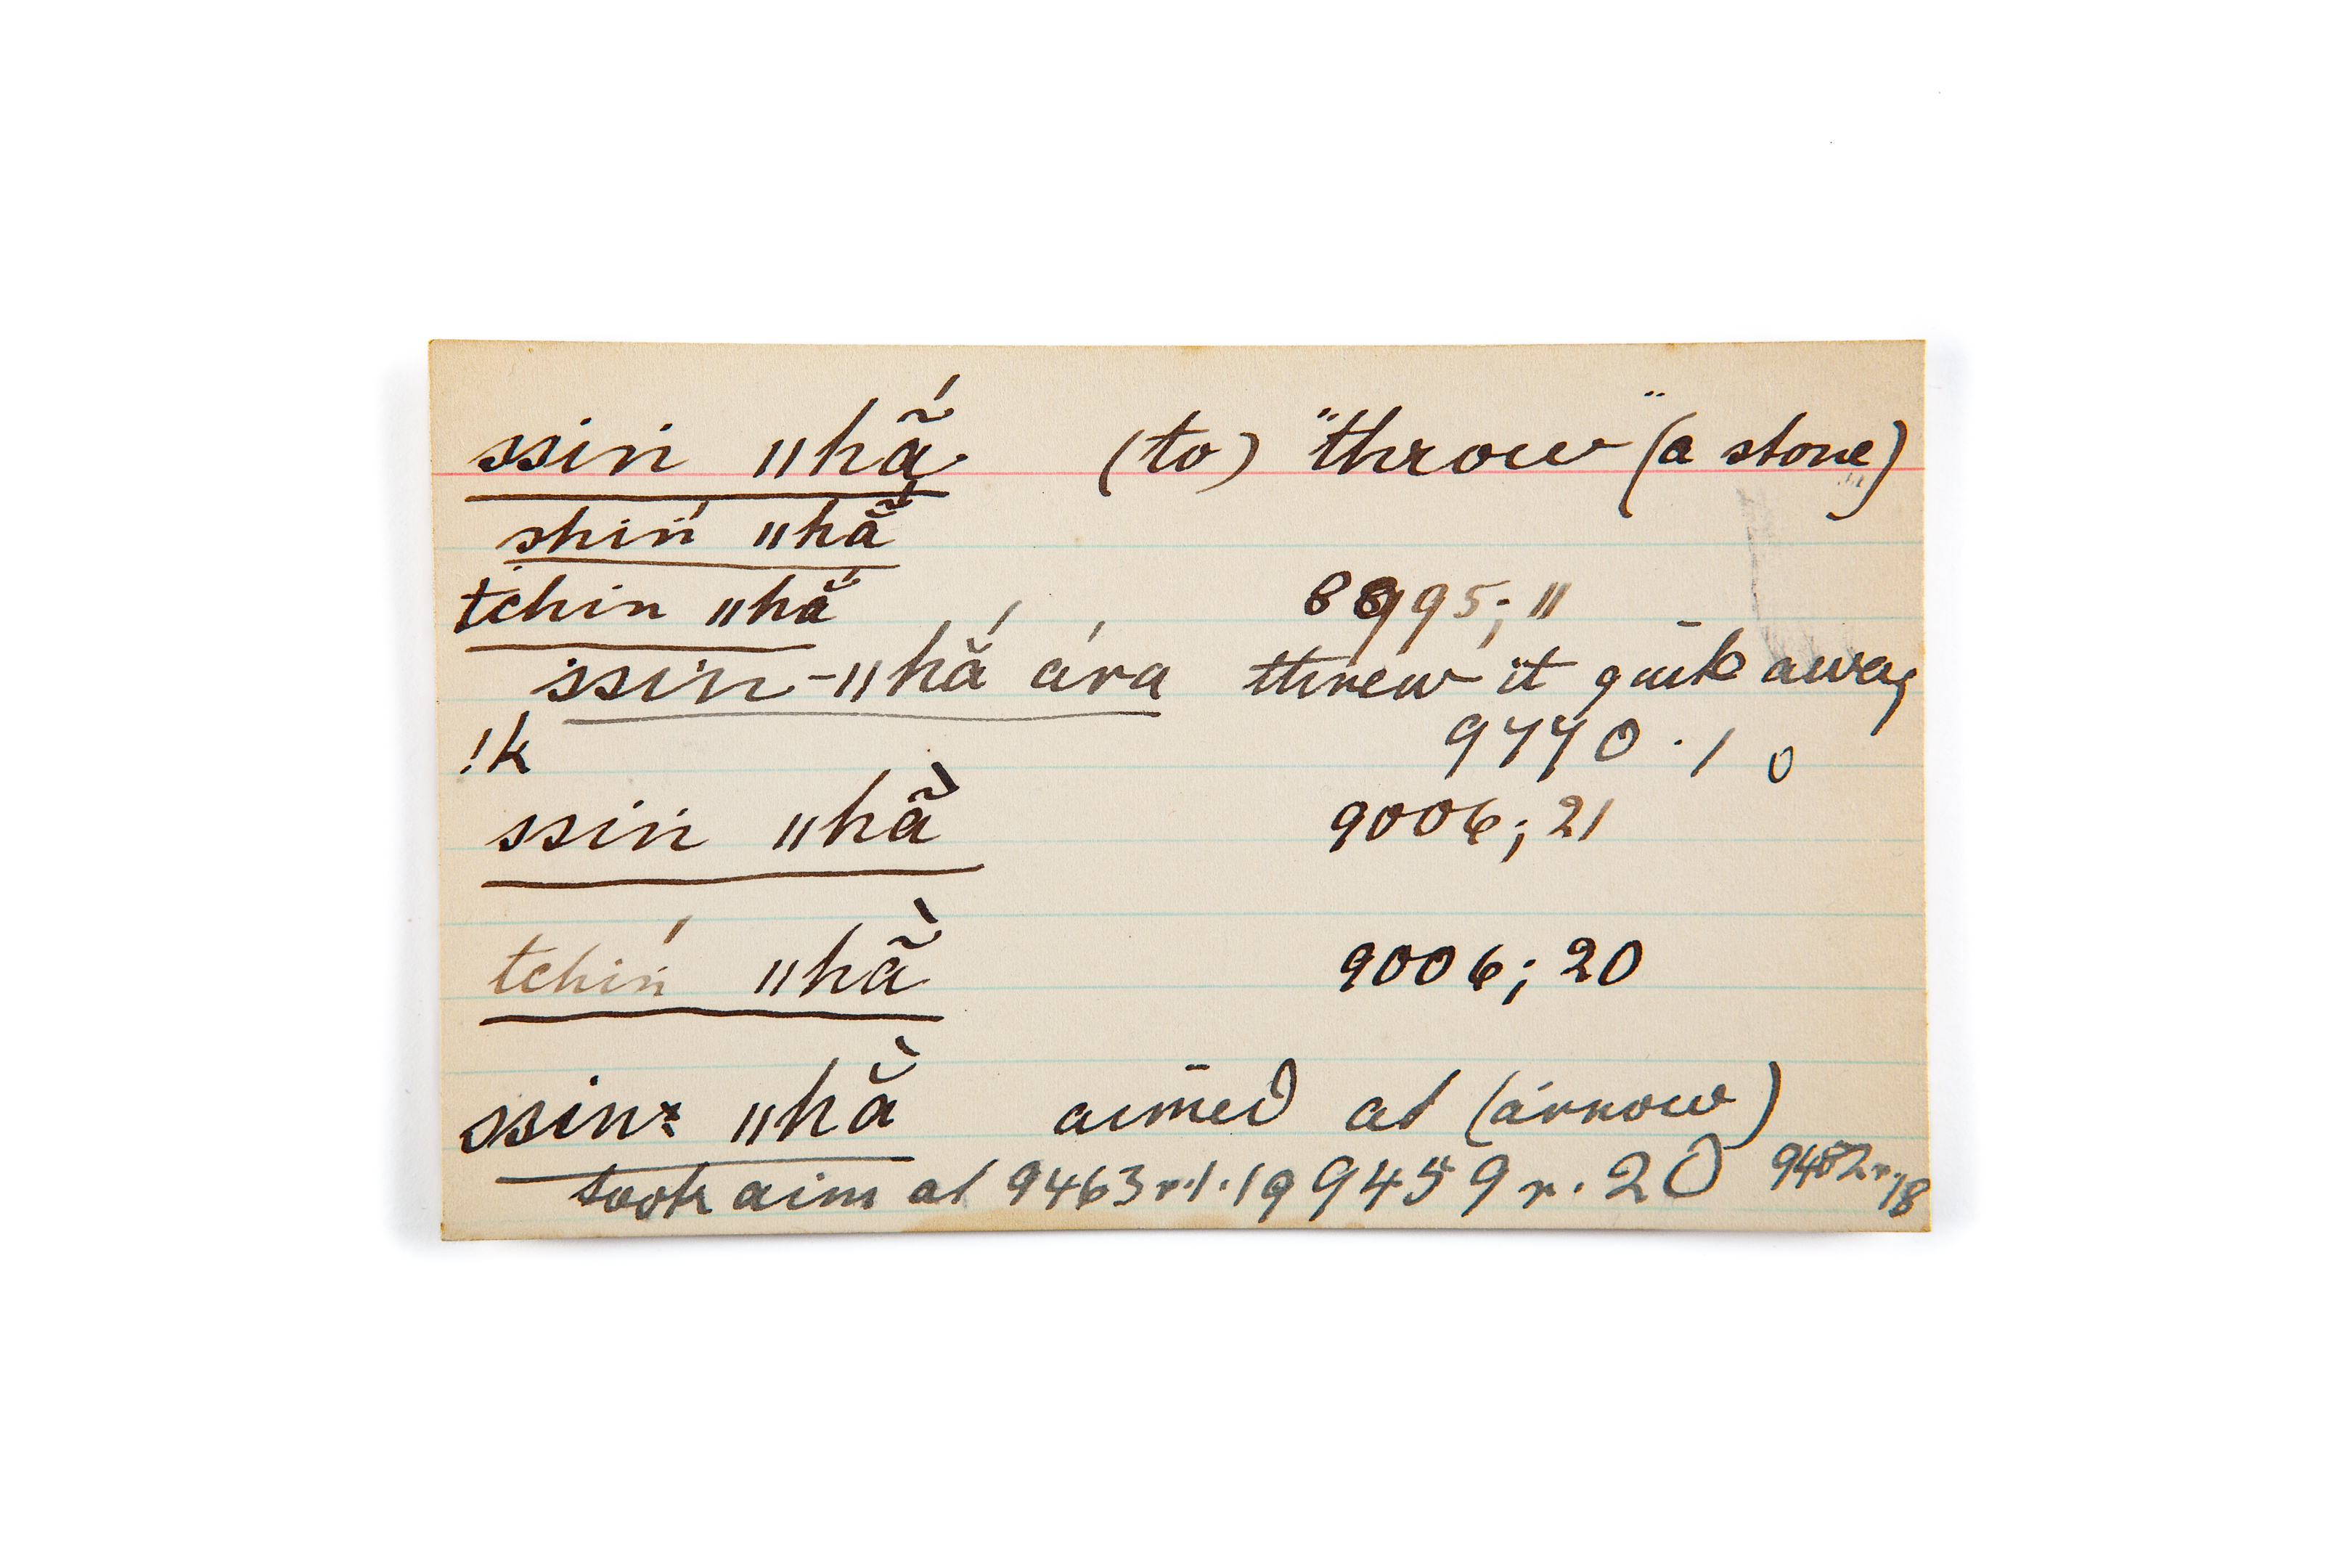 ssin ǁhã́ (to) "throw" (a stone)
shin ǁhã́
tchin ǁhã́ 8995; 11
ssin-ǁhá ára threw it quik away
!k 9770 · 10
ssin ǁhã̀ 9006; 21
tchín ǁhã̀ 9006; 20
ssin ǁhằ aimed at (arrow)
took aim at 9463 r.1.19 9459 r. 20 9482 r. 18